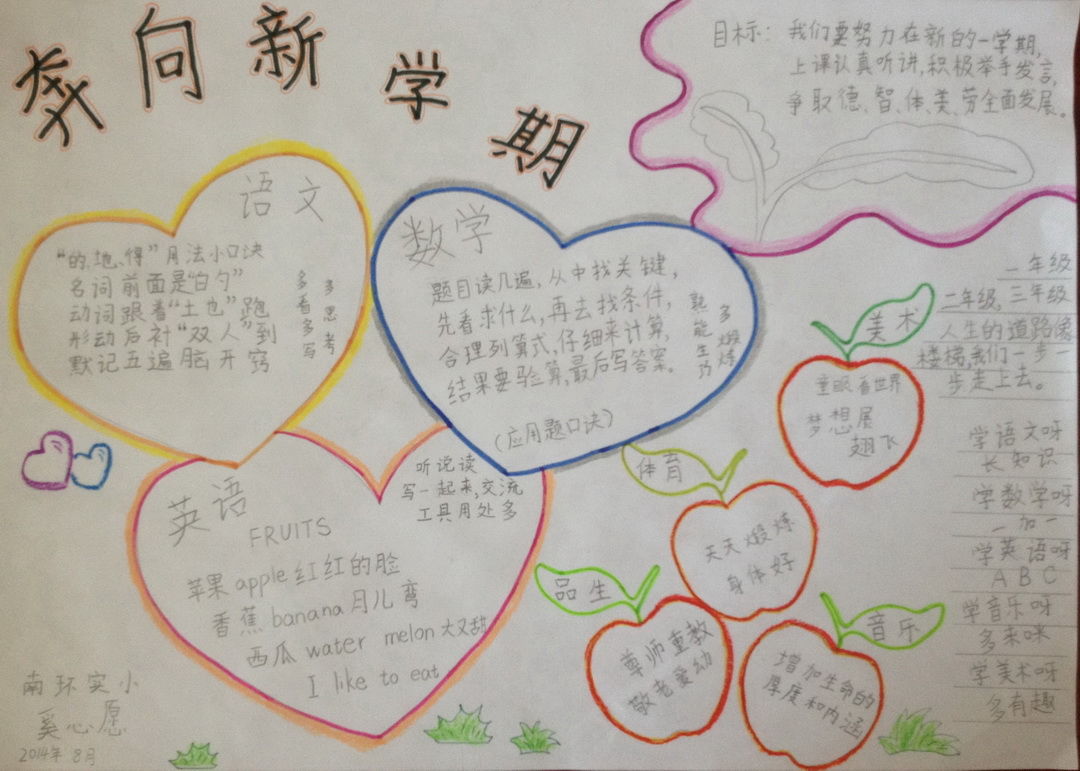 奔向新学期
目标：我们要努力在新的一学期，
上课认真听讲，积极举手发言，
争取德、智、体、美、劳全面发展。
语文
“的、地、得”用法小口诀
名词前面是“白勺”
动词跟着“土也”跑
形动后补“双人”到
默记五遍脑开窍
多看多写
多思考
数学
题目读几遍，从中找关键，
先看求什么，再去找条件，
合理列算式，仔细来计算，
结果要验算，最后写答案。
（应用题口诀）
熟能生巧
多煅炼
英语
FRUITS
苹果 apple 红红的脸
香蕉 banana 月儿弯
西瓜 water melon 大又甜
I like to eat
听说读
写一起来，交流
工具用处多
美术
童眼看世界
梦想展
翅飞
体育
天天煅炼
身体好
品生
尊师重教
敬老爱幼
音乐
增加生命的
厚度和内涵
一年级
二年级，三年级
人生的道路像
楼梯，我们一步一
步走上去。
学语文呀
长知识
学数学呀
一加一
学英语呀
A B C
学音乐呀
多来咪
学美术呀
多有趣
南环实小
奚心愿
2014年8月